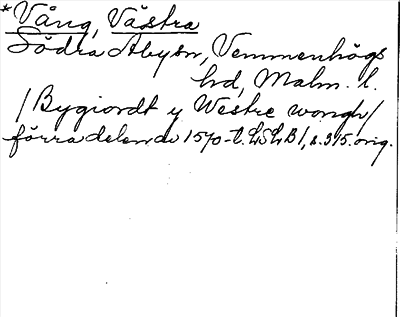 *Vång, Västra
Södra Åbysn, Vemmenhögs
hd, Malm. l.
/Bygiordt y Westre wongh/
förra delen av 1570-t. LSLB1, s. 315. orig.